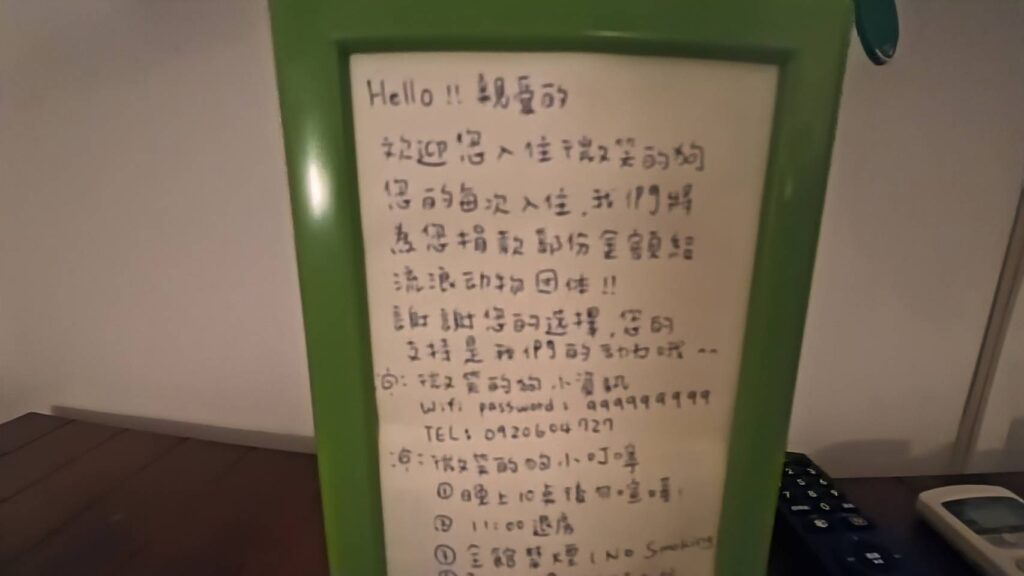 Hello !! 親愛的
歡迎您入住微笑的狗
您的每次入住,我們將
為您捐款部份金額給
流浪动物团体 !!
謝謝您的选擇,您的
支持是我們的动力哦 ~~
微笑的狗小資訊
Wifi password: 999999999
TEL: 0920604727
微笑的狗小叮嚀
① 晚上10点後勿喧嘩!
② 11:00 退房
③ 全館禁煙 (No Smoking